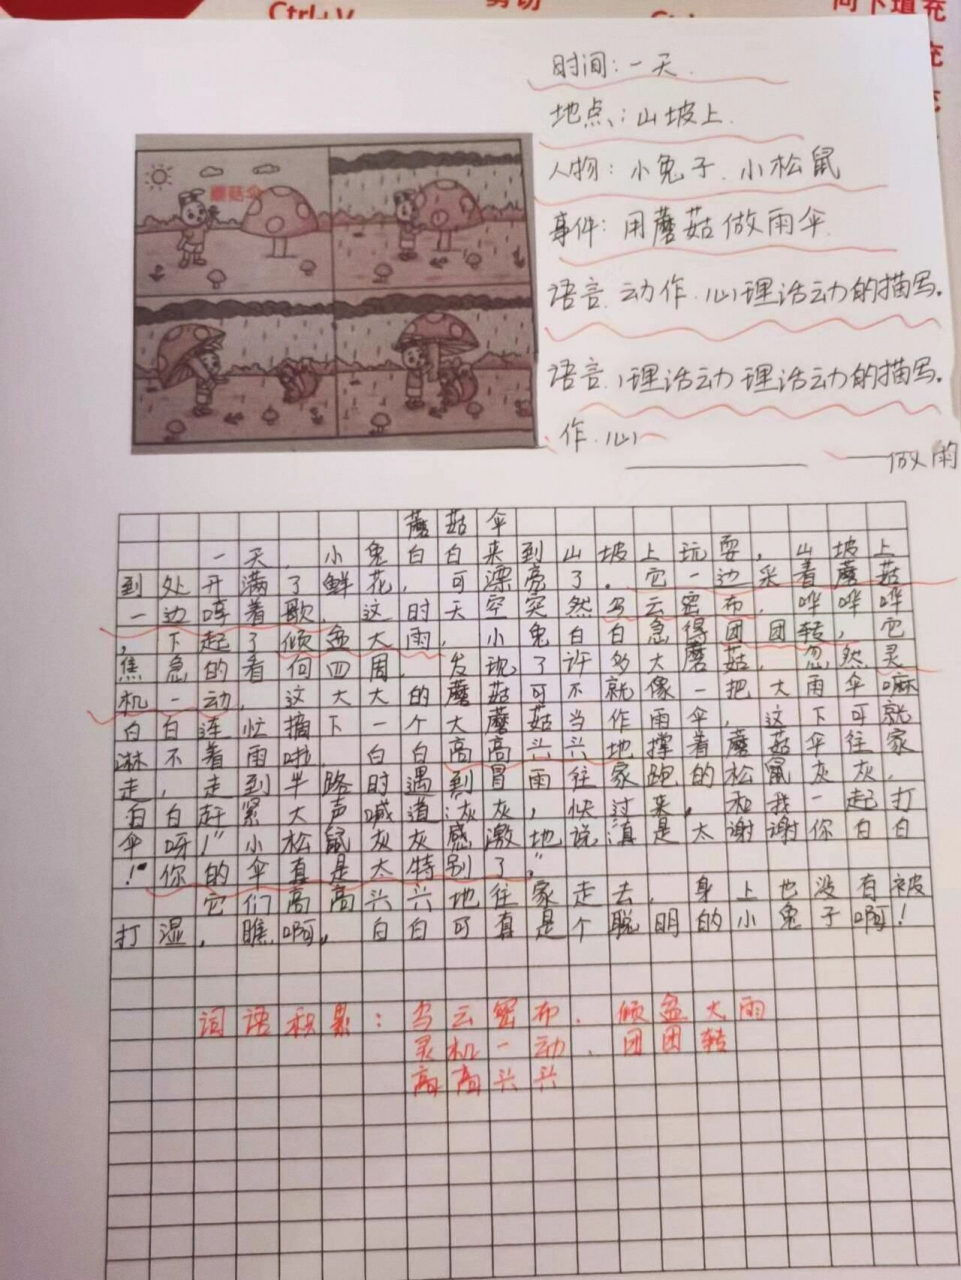 Ctrl+V
剪切
向下填充
充
时间：一天.
地点：山坡上.
人物：小兔子.小松鼠
蘑菇伞
事件：用蘑菇做雨伞.
语言.动作.心理活动的描写.
语言.心理活动理活动的描写.
作.心
做雨
蘑菇伞
一天，小兔白白来到山坡上玩耍，山坡上
到处开满了鲜花，可漂亮了。它一边采着蘑菇
一边哼着歌，这时天空突然乌云密布，哗哗哗
，下起了倾盆大雨，小兔白白急得团团转，它
焦急的看向四周，发现了许多大蘑菇，忽然灵
机一动，这大大的蘑菇可不就像一把大雨伞嘛
白白连忙摘下一个大蘑菇当作雨伞，这下可就
淋不着雨啦，白白高高兴兴地撑着蘑菇伞往家
走，走到半路时遇到冒雨往家跑的松鼠灰灰，
白白赶紧大声喊道：灰灰，快过来，和我一起打
伞呀！”小松鼠灰灰感激地说：真是太谢谢你白白
！“你的伞真是太特别了。”
它们高高兴兴地往家走去，身上也没有被
打湿，瞧啊，白白可真是个聪明的小兔子啊！
词语积累：乌云密布．倾盆大雨
灵机一动．团团转
高高兴兴